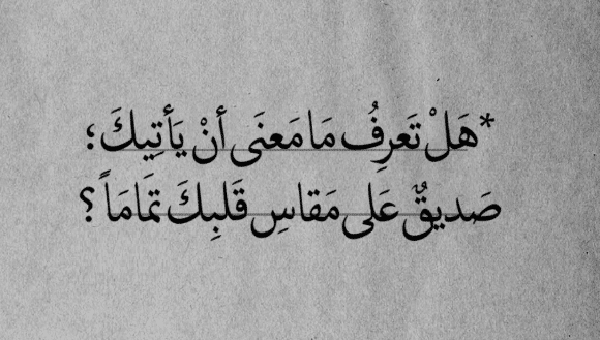 *هَلْ تَعرِفُ مَا مَعنَى أنْ يَأتِيكَ؛
صَديقٌ عَلى مَقاسِ قَلبِكَ تَمَامَاً ؟